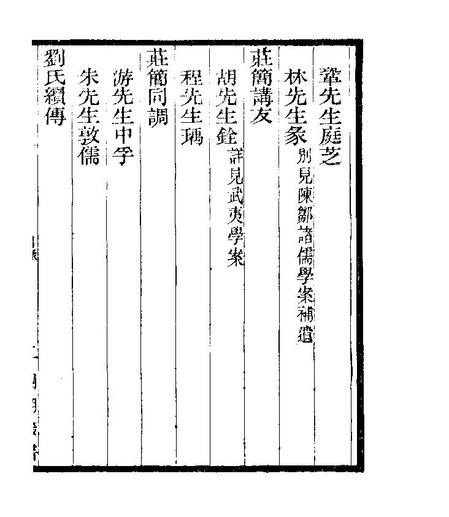 鞏先生庭芝
林先生彖別見陳鄒諸儒學案補遺
莊簡講友
胡先生銓詳見武夷學案
程先生瑀
莊簡同調
游先生中孚
朱先生敦儒
劉氏續傳